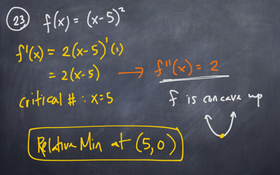 23 f(x) = (x-5)²
f'(x) = 2(x-5)¹(1)
= 2(x-5) → f''(x) = 2
critical # : x=5
f is concave up
Relative Min at (5,0)